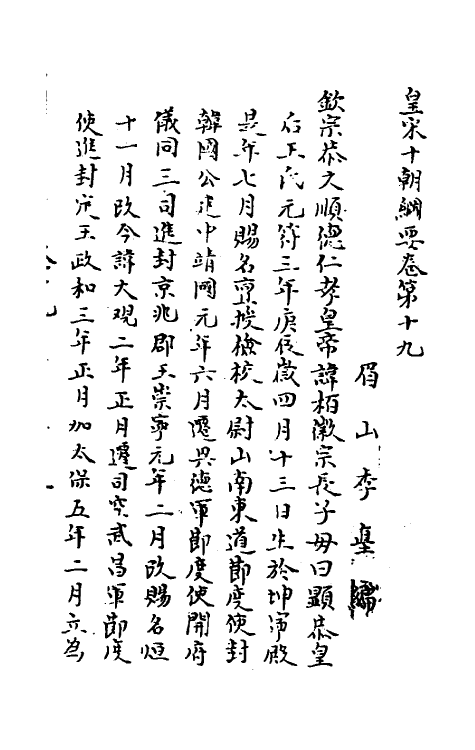 皇宋十朝綱要卷第十九
眉山李𡌴編
欽宗恭文順德仁孝皇帝諱桓徽宗長子母曰顯恭皇
后王氏元符三年庚辰歲四月十三日生於坤寧殿
是年七月賜名亶授檢校太尉山南東道節度使封
韓國公建中靖國元年六月遷興德軍節度使開府
儀同三司進封京兆郡王崇寧元年二月改賜名烜
十一月改今諱大观二年正月遷司空武昌軍節度
使進封定王政和三年正月加太保五年二月立為